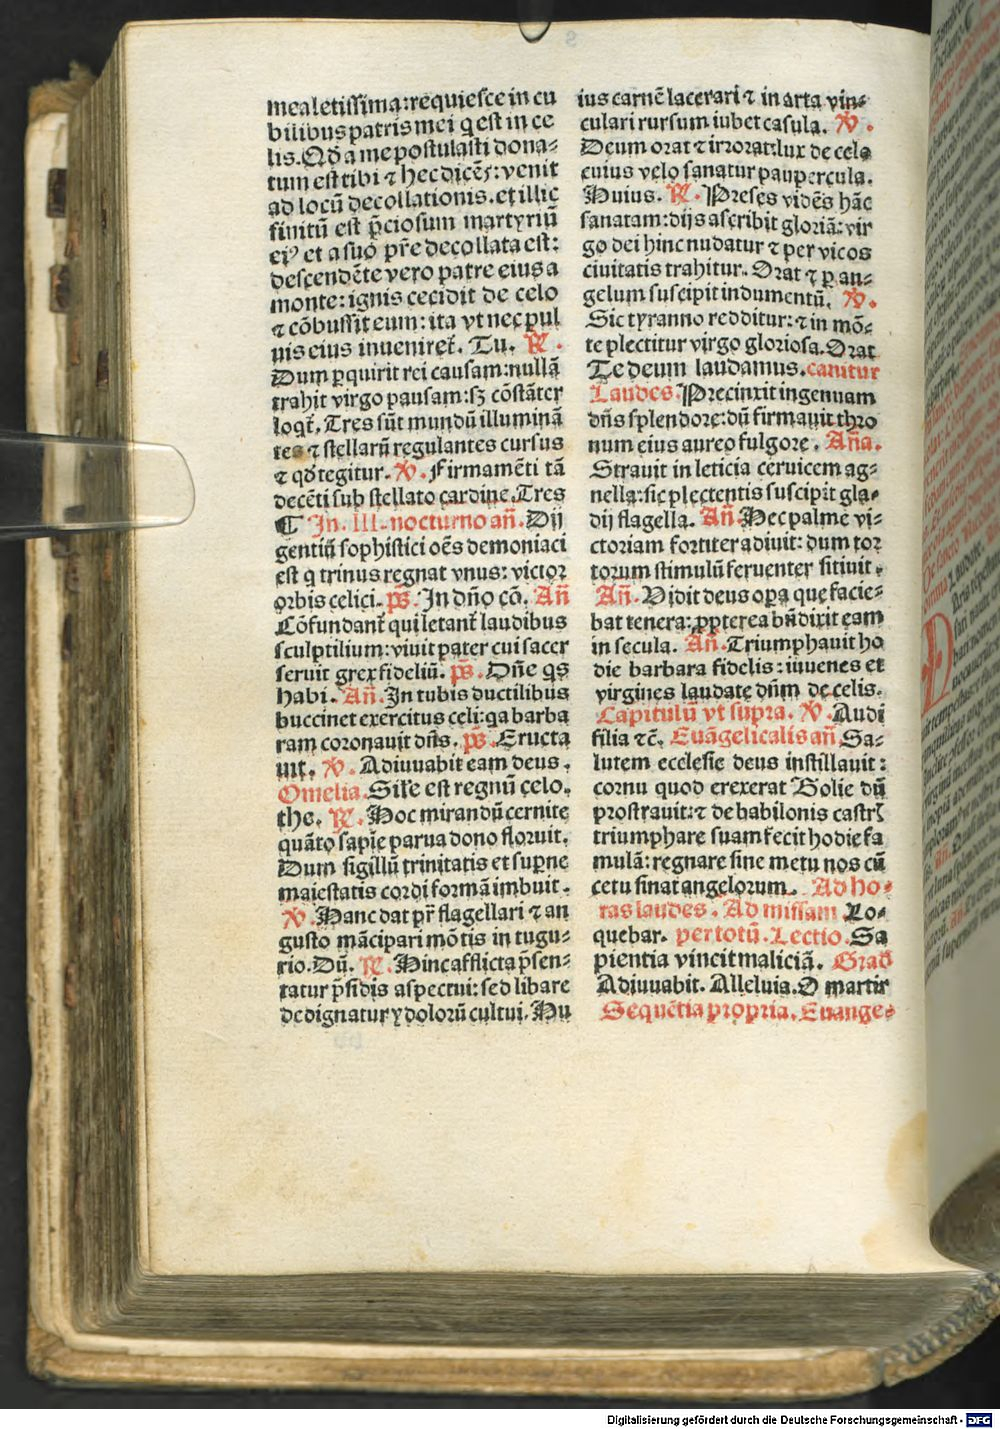 mea letissima: requiesce in cu
bilibus patris mei q̄ est in ce
lis. Qd̄ a me postulasti dona⸗
tum est tibi ⁊ hec dicēs: venit
ad locū decollationis. et illic
finitū est p̄ciosum martyriū
eiꝰ et a suo p̄re decollata est:
descendēte vero patre eius a
monte: ignis cecidit de celo
⁊ cōbussit eum: ita vt nec pul
uis eius inueniret̄. Tu. ℟.
Dum p̄quirit rei causam: nullā
trahit virgo pausam: sꝫ cōstāter
loqt̄. Tres sūt mundū illuminā
tes ⁊ stellarū regulantes cursus
⁊ qd̄ tegitur. ℣. Firmamēti tā
decēti sub stellato cardine. Tres
¶ In. III. nocturno an̄. Dij
gentiū sophistici oēs demoniaci
est q̄ trinus regnat vnus: victor
orbis celici. ps̄. In dn̄o cō. An̄
Cōfundant̄ qui letant̄ laudibus
sculptilium: viuit pater cui sacer
seruit grex fideliū. ps̄. Dn̄e qs̄
habi. An̄. In tubis ductilibus
buccinet exercitus celi: qa barba
ram coronauit dn̄s. ps̄. Eructa
uit. ℣. Adiuuabit eam deus.
Omelia. Sil̄e est regnū celo.
the. ℟. Hoc mirandū cernite
quāto sapīe parua dono floruit.
Dum sigillū trinitatis et sup̄ne
maiestatis cordi formā imbuit.
℣. Hanc dat pr̄ flagellari ⁊ an
gusto mācipari mōtis in tugu⸗
rio. Dū. ℟. Hinc afflicta p̄sen⸗
tatur p̄sidis aspectui: sed libare
dedignatur ydolorū cultui. Hu
ius carnē lacerari ⁊ in arta vin⸗
culari rursum iubet casula. ℣.
Deum orat ⁊ irrorat: lux de cela
cuius velo sanatur paupercula.
Huius. ℟. Preses vidēs hāc
sanatam: dijs ascribit gloriā: vir
go dei hinc nudatur ⁊ per vicos
ciuitatis trahitur. Orat ⁊ p̄ an⸗
gelum suscipit indumentū. ℣.
Sic tyranno redditur: ⁊ in mō⸗
te plectitur virgo gloriosa. Orat
Te deum laudamus. canitur
Laudes. Precinxit ingenuam
dn̄s splendore: dū firmauit thro
num eius aureo fulgore. An̄a.
Strauit in leticia ceruicem ag⸗
nella: sic plectentis suscipit gla⸗
dij flagella. An̄. Hec palme vi⸗
ctoriam fortiter adiuit: dum tor
torum stimulū feruenter sitiuit.
An̄. Vidit deus opa que facie⸗
bat tenera: p̄pterea bn̄dixit eam
in secula. An̄. Triumphauit ho
die barbara fidelis: iuuenes et
virgines laudate dn̄m de celis.
Capitulū vt supra. ℣. Audi
filia ⁊c̄. Euāgelicalis an̄. Sa⸗
lutem ecclesie deus instillauit:
cornu quod erexerat Bolie dū
prostrauit: ⁊ de babilonis castrꝭ
triumphare suam fecit hodie fa
mulā: regnare sine metu nos cū
cetu sinat angelorum. Ad ho⸗
ras laudes. Ad missam Lo⸗
quebar. per totū. Lectio. Sa
pientia vincit maliciā. Grad̄
Adiuuabit. Alleluia. O martir
Sequētia propria. Euange⸗
Digitalisierung gefördert durch die Deutsche Forschungsgemeinschaft - DFG